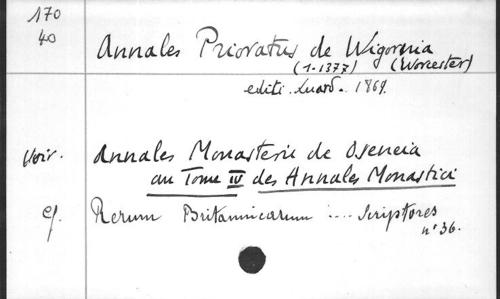 170
40
Annales Prioratus de Wigornia
(1-1377) (Worcester)
editi. Luard. 1869.
Voir. Annales Monasterii de Oseneia
au Tome IV des Annales Monastici
Cf. Rerum Britannicarum .... Scriptores
n° 36.